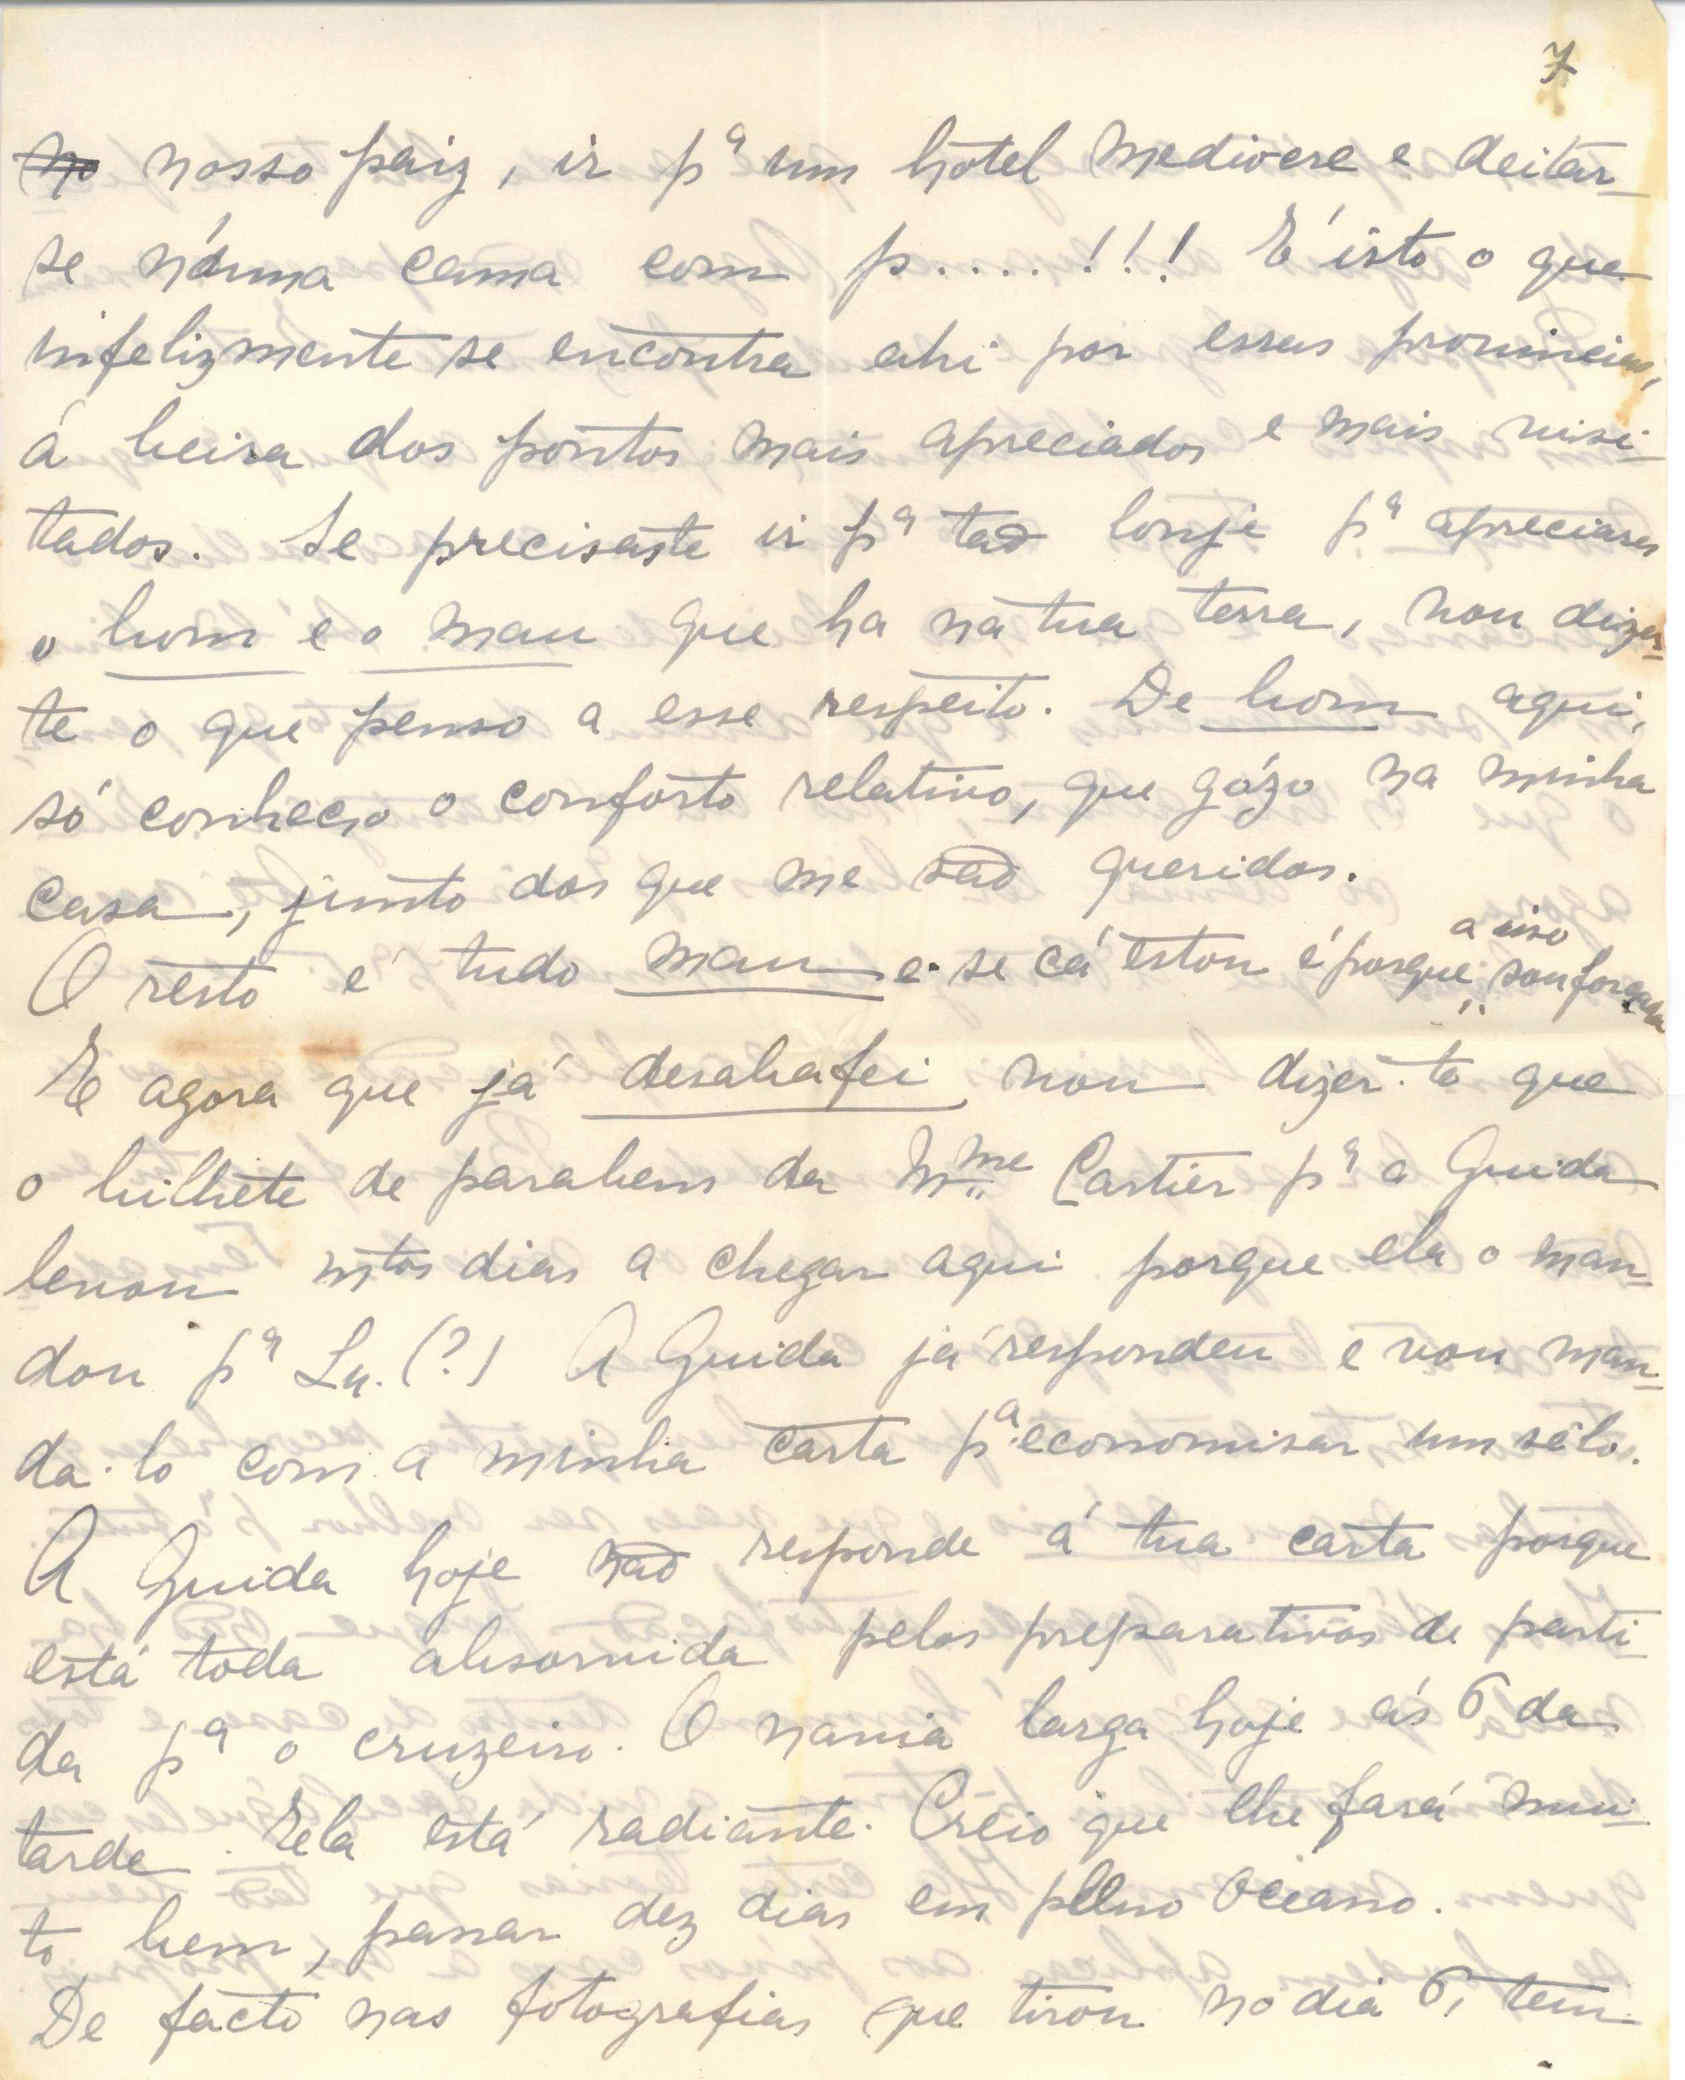 7
no nosso paiz, ir pª um hotel mediocre e deitar-
se n'uma cama com p....!!! É isto o que
infelizmente se encontra ahi por essas provincias,
á beira dos pontos mais apreciados e mais visi-
tados. Se precisaste ir pª tão longe pª apreciares
o bom e o mau que ha na tua terra, vou dizer-
te o que penso a esse respeito. De bom aqui,
só conheço o conforto relativo, que gózo na minha
casa, junto dos que me são queridos.
O resto é tudo mau e se cá estou é porque a isso sou forçada
E agora que já desabafei vou dizer-te que
o bilhete de parabens da Mme Cartier pª a Guida
levou mtos dias a chegar aqui porque ela o man-
dou pª Lx. (?) A Guida já respondeu e vou man-
da-lo com a minha carta pª economisar um sêlo.
A Guida hoje não responde á tua carta porque
está toda absorvida pelos preparativos de parti-
da pª o cruzeiro. O navio larga hoje ás 6 da
tarde. Ela está radiante. Creio que lhe fará mui-
to bem, passar dez dias em pleno Oceano.
De facto nas fotografias que tirou no dia 6, tem